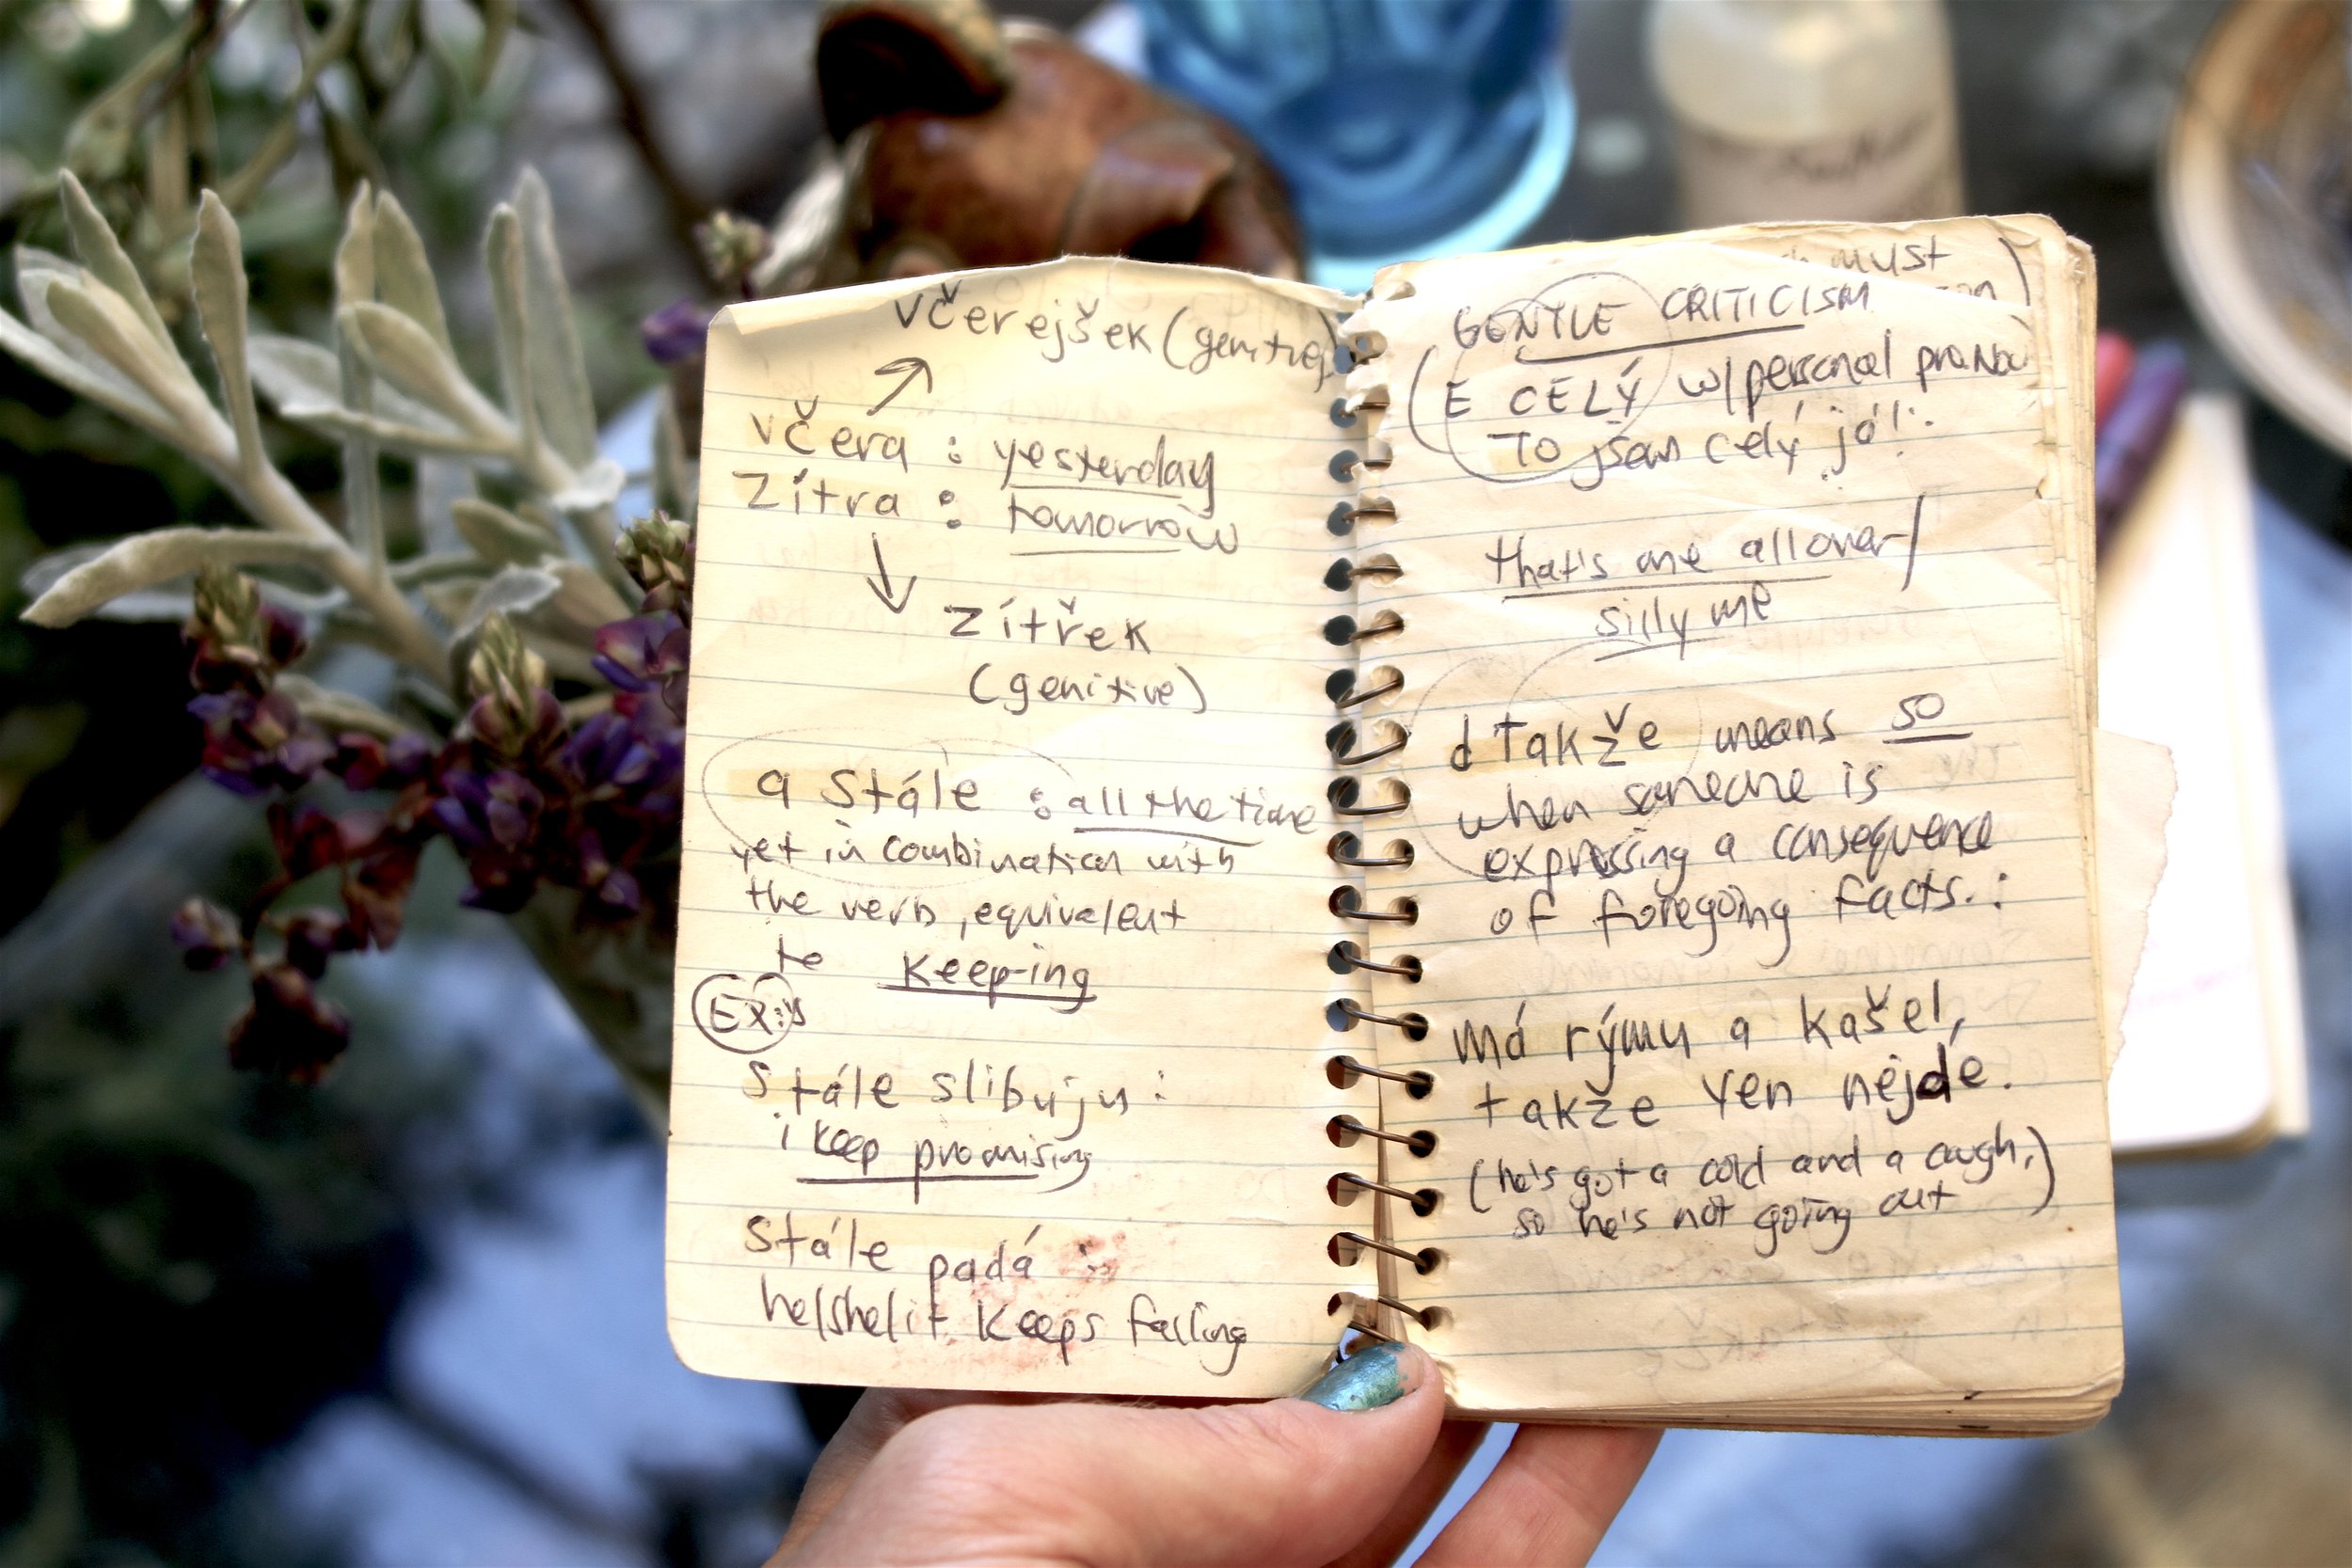 včerejšek (genitive)
včera : yesterday
zítra : tomorrow
zítřek
(genitive)
a stále : all the time
yet in combination with
the verb, equivalent
to keep-ing
EX:
Stále slibuju :
i keep promising
Stále padá :
he/she/it keeps falling
must
GENTLE CRITICISM
(E CELÝ w/personal pronou
TO jsem celý já! :
that's me all over/
silly me
d Takže means so
when someone is
expressing a consequence
of foregoing facts. :
Má rýmu a kašel,
takže ven nejde.
(he's got a cold and a cough,)
so he's not going out